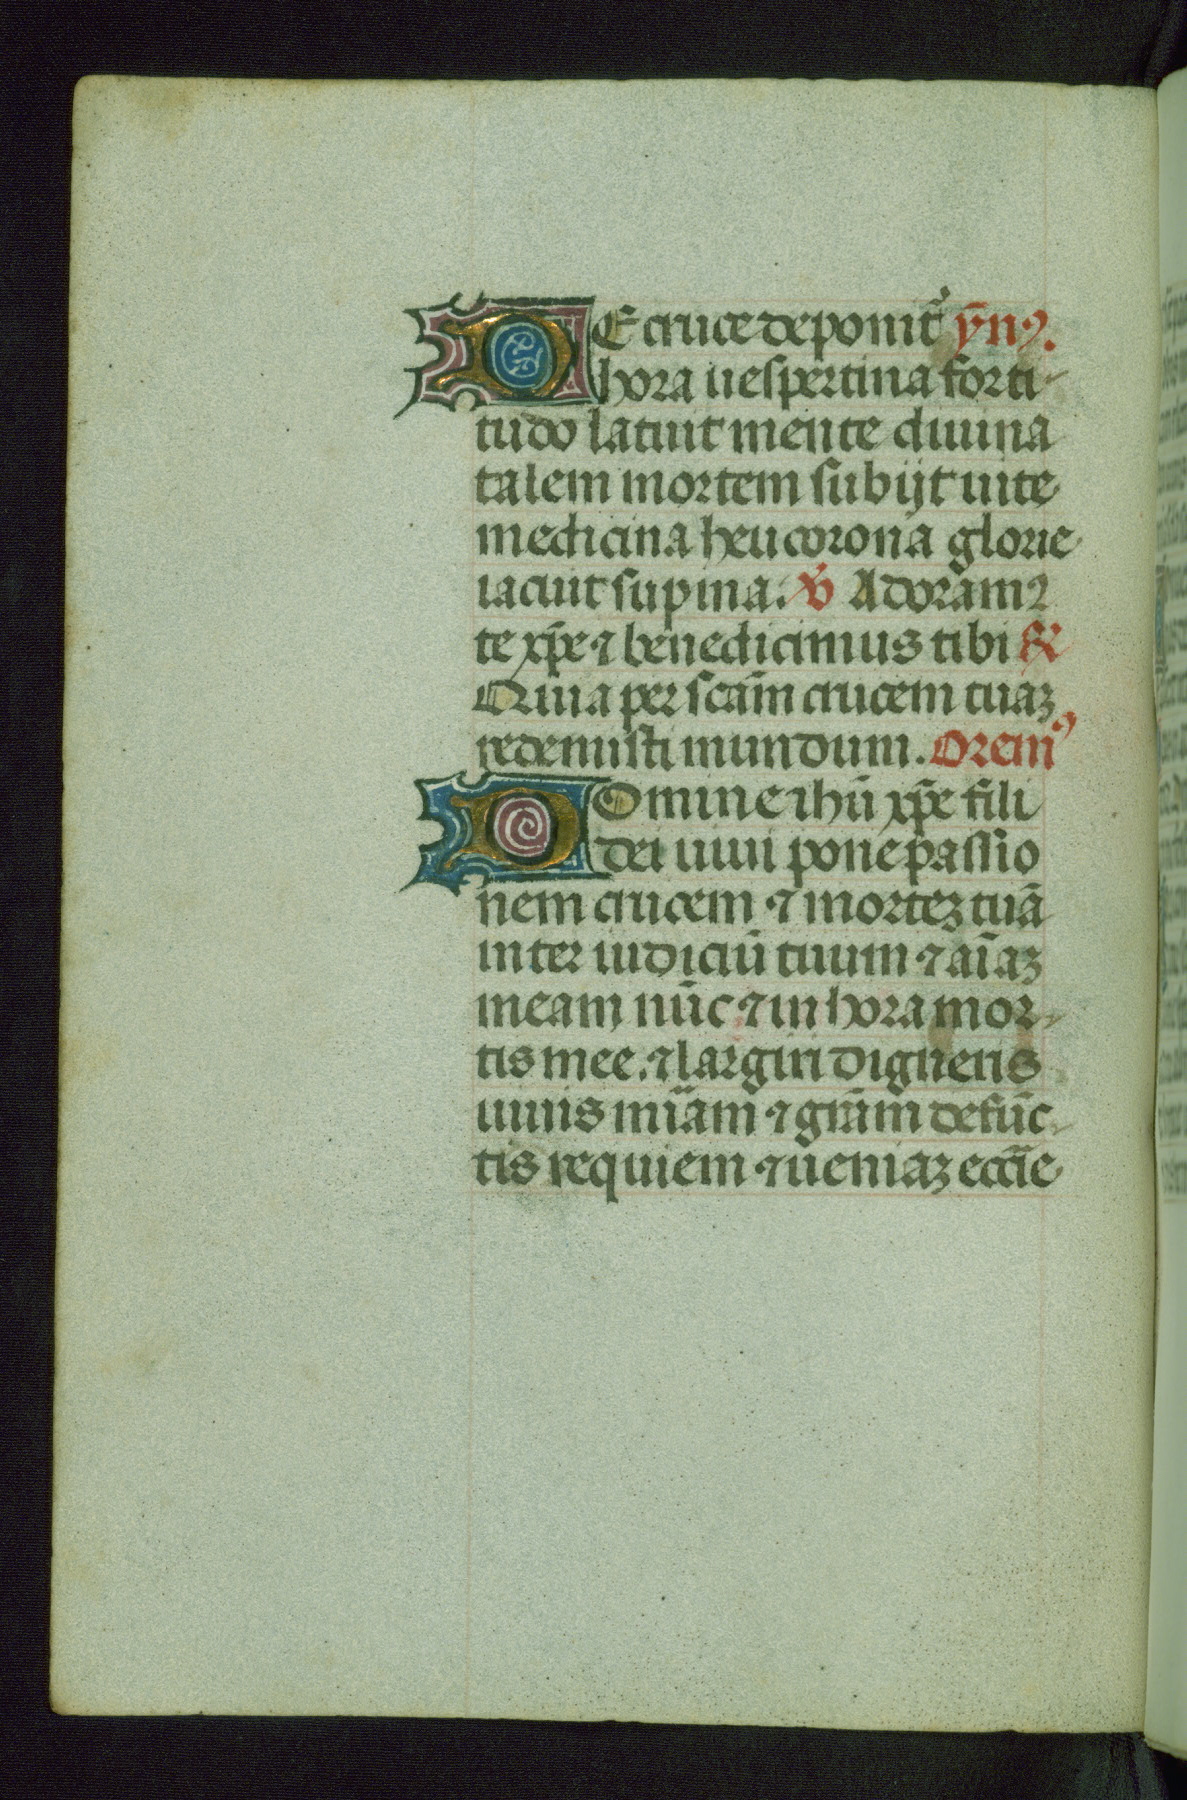 DE cruce deponit᷑ ym̄9.
hora uespertina forti-
tudo latuit mente diuina
talem mortem subijt uite
medicina heu corona glorie
iacuit supina. ℣ Adoram9
te xp̄e ⁊ benedicimus tibi ℟
Quia per scām crucem tuaꝫ
redemisti mundum. Orem9
DOmine ihū xp̄e fili
dei uiui pone passio
nem crucem ⁊ morteꝫ tuā
inter iudiciū tuum ⁊ aīaꝫ
meam nūc ⁊ in hora mor-
tis mee. ⁊ largiri digneris
uiuis mīam ⁊ grām defūc-
tis requiem ⁊ ueniaꝫ eccīe